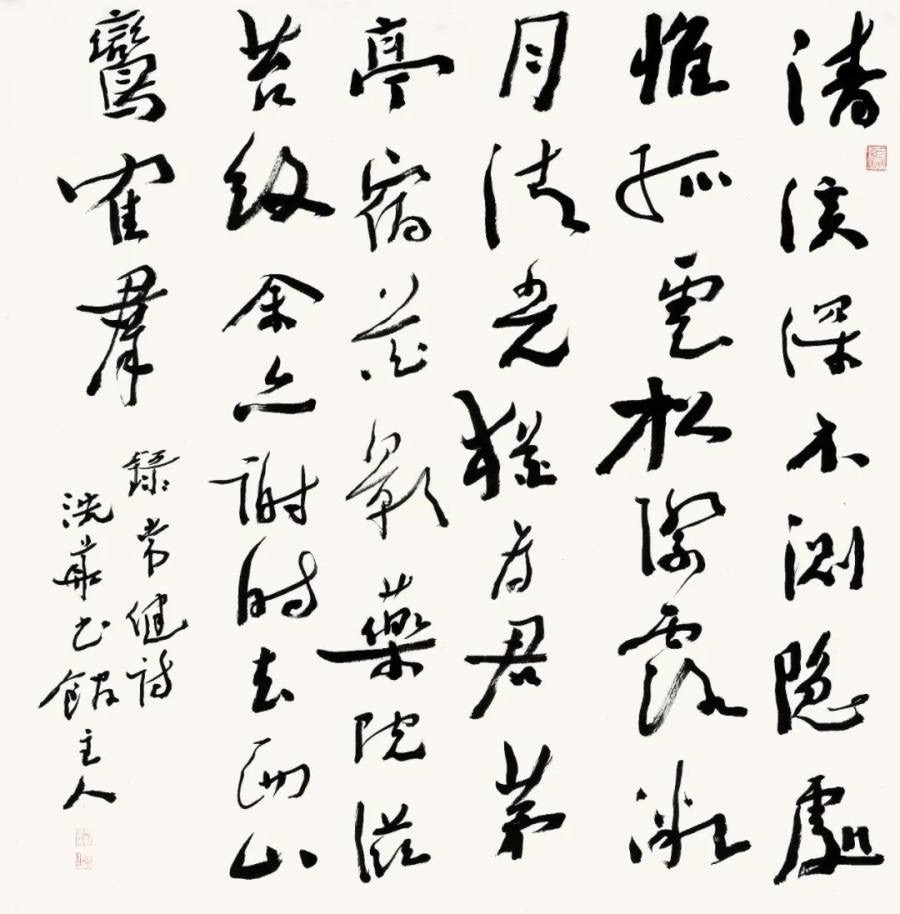 清溪深不測隐處
惟孤雲松際露微
月清光猶为君茅
亭宿花影藥院滋
苔紋余亦謝时去西山
鸞寉羣
錄常健诗
華书館主人